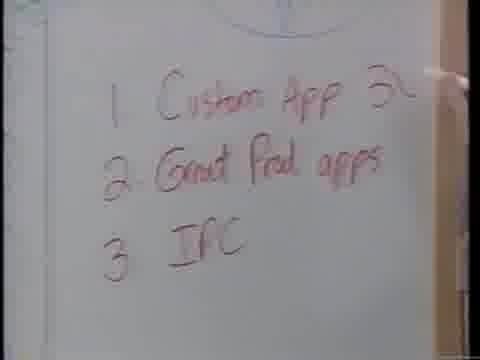 1 Custom App
2. Great Prod apps
3 IPC